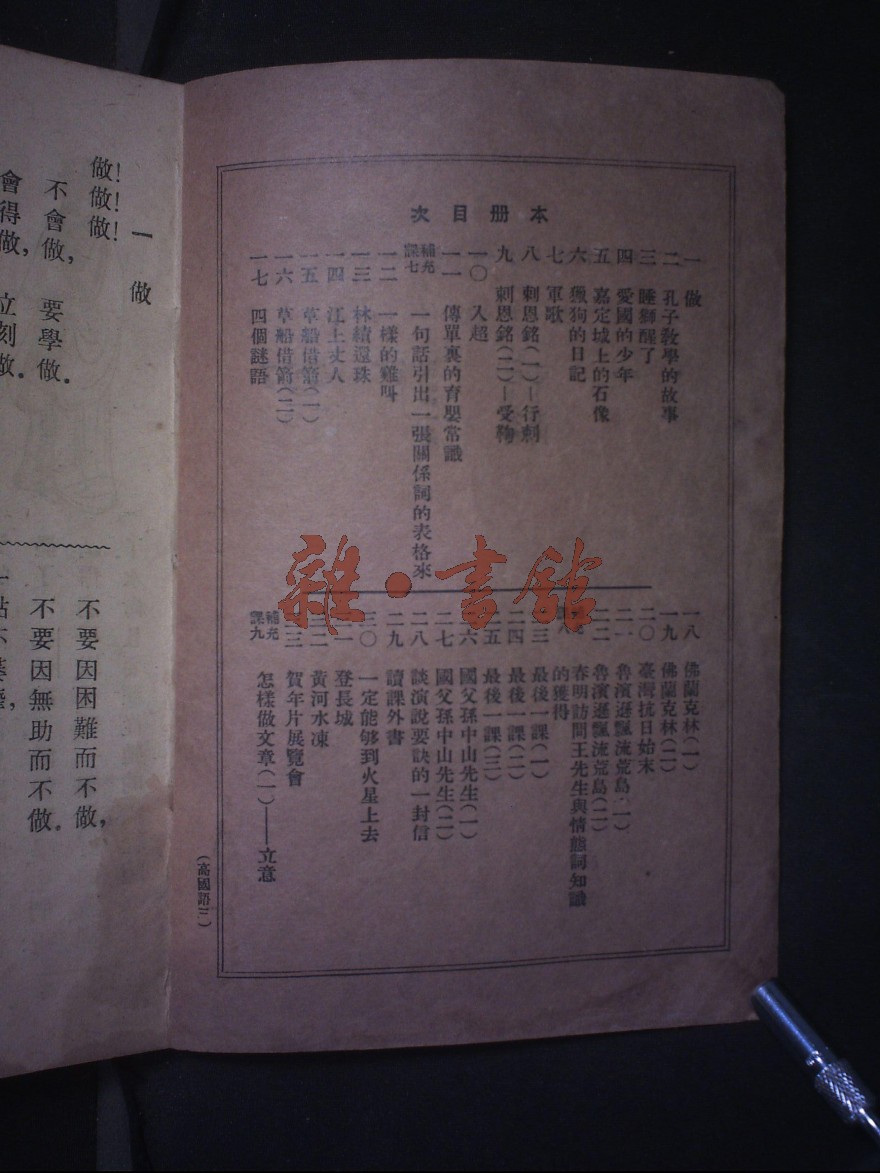 本册目次
一 做
二 孔子教學的故事
三 睡獅醒了
四 愛國的少年
五 嘉定城上的石像
六 獵狗的日記
七 軍歌
八 刺恩銘(一)—行刺
九 刺恩銘(二)—受鞫
一〇 入超
一一 傳單裏的育嬰常識
補充課七 一句話引出一張關係詞的表格來
一二 一樣的雞叫
一三 林績還珠
一四 江上丈人
一五 草船借箭(一)
一六 草船借箭(二)
一七 四個謎語
一八 佛蘭克林(一)
一九 佛蘭克林(二)
二〇 臺灣抗日始末
二一 魯濱遜飄流荒島(一)
二二 魯濱遜飄流荒島(二)
春明訪問王先生與情態詞知識的獲得
二三 最後一課(一)
二四 最後一課(二)
二五 最後一課(三)
二六 國父孫中山先生(一)
二七 國父孫中山先生(二)
二八 談演說要訣的一封信
二九 讀課外書
三〇 一定能够到火星上去
登長城
黃河水凍
賀年片展覽會
補充課九 怎樣做文章(一)——立意
(高國語三)
雜·書館
一 做
做!做!做!
不會做,要學做。
會得做,立刻做。
不要因困難而不做,
不要因無助而不做。